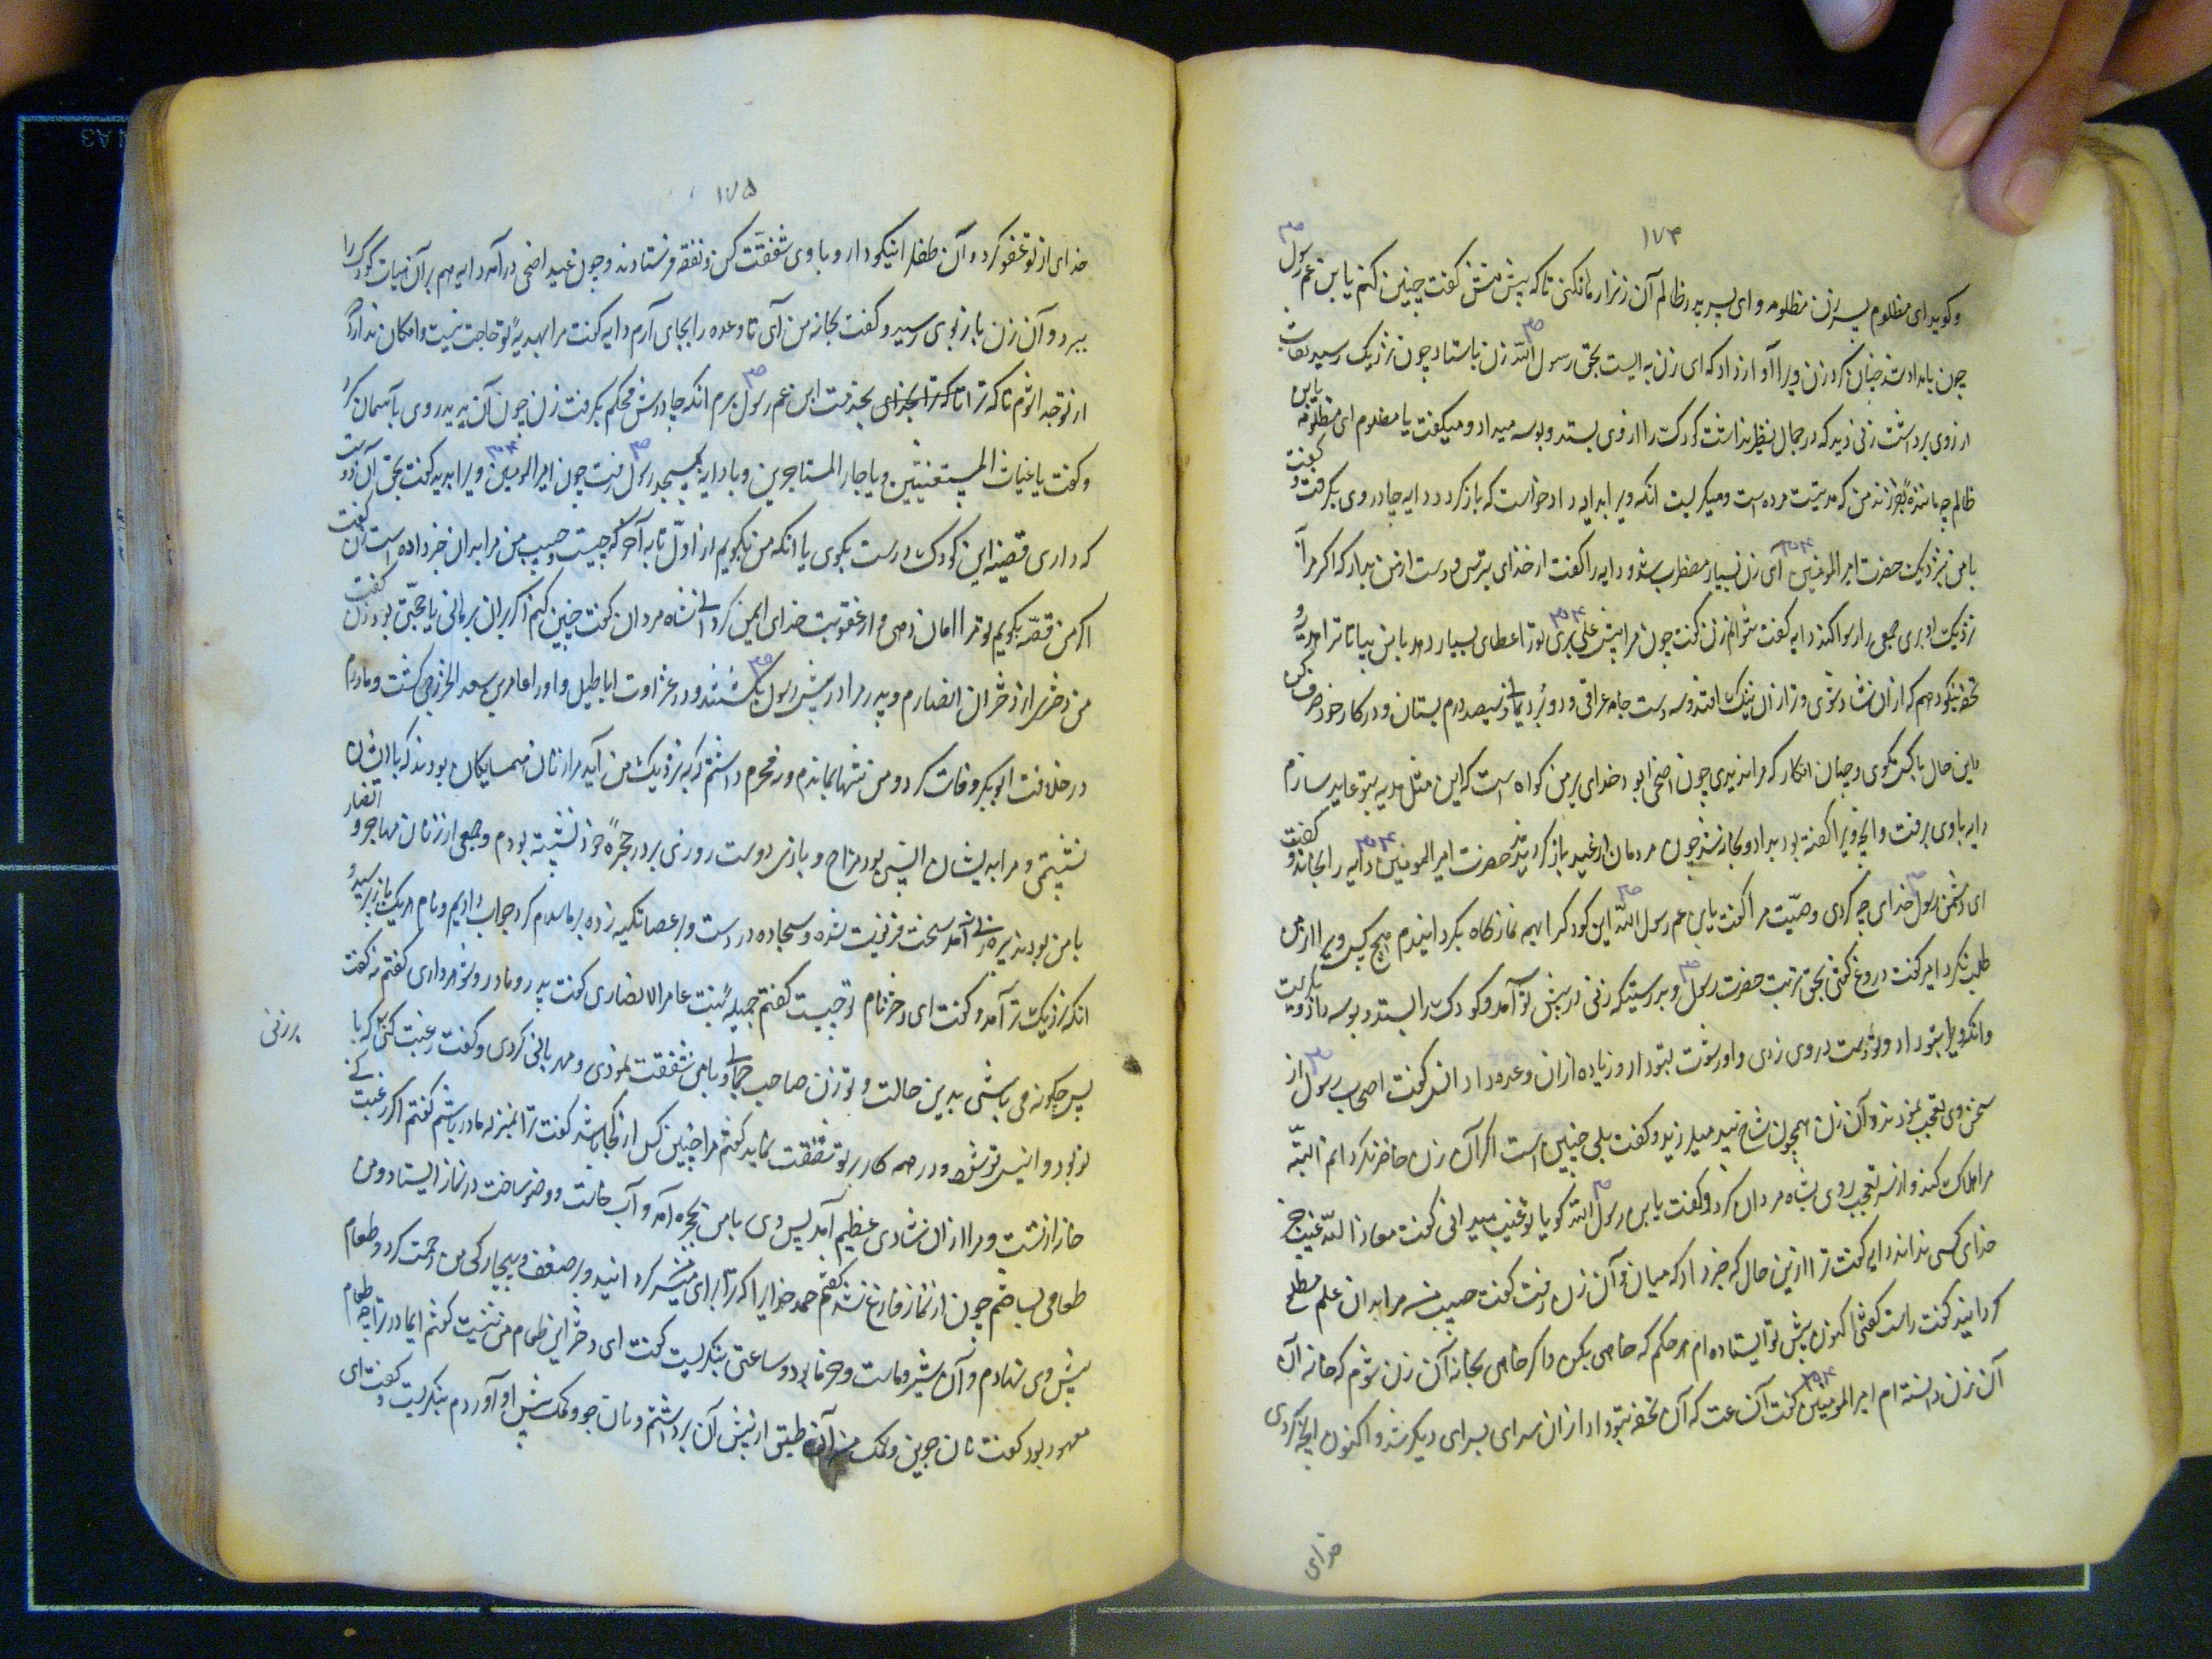 ۱۷۴
وکوید ای مظلوم پسر زن مظلومه و ای پسر پدر ظالم آن زنرا رها نکنی تا که پیش منش کفت چنین کنم یا بن عم رسول
چون بامداد شد چنان کرد زن ویرا آواز داد که ای زن به ایست بحق رسول الله زن باستاد چون نزدیک رسید نقاب
از روی برداشت زنی دید که در جمال نظیر نداشت کودک را از وی بستد و بوسه میداد و میکفت یا مظلوم ای مظلومه یا بن
ظالم چه مانندهٔ بفرزند من که مدتیست مرده است و میکریست انکه ویرا بدایه داد و خواست که باز کردد دایه چادر وی بکرفت و کفت
با من نزدیک حضرت امیر المومنین آی زن بسیار مضطرب شد و دایه را کفت از خدای بترس و دست از من بدار که اکر مرا
نزدیک او بری جمعی را رسوا کند دایه کفت نتوانم زن کفت چون مرا پیش علی بری تورا عطای بسیار دهد با من بیا تا ترا هدیه
تحفه نیکو دهم که از آن شاد شوی و ترا از آن نیک افتد و سه دست جامه عراقی و دو بُرد یمانی و سیصد درم بستان و در کار خود صرف کن
و این حال با کس مکوی و چنان انکار که مرا ندیدی چون اضحی بود خدای بر من کواه است که این مثل هدیه بتو عاید سازم
دایه با وی برفت و انچه ویرا کفته بود بداد و بخانه شد چون مردمان از عید باز کردیدند حضرت امیر المومنین دایه را بخاند و کفت
ای دشمن رسول خدای چه کردی وصیّت مرا کفت یا بن عم رسول الله این کودکرا بهمه نمازکاه بکردانیدم هیچ کس ویرا از من
طلب نکرد امیر کفت دروغ کفتی بحق تربت حضرت رسول و بدرستیکه زنی در پیش تو آمد و کودک را بستد و بوسه داد و بکریست
وانکه ویرا بتو داد و تو دست در وی زدی و او رشوت بتو داد و زیاده از آن وعده داد کفت اصحاب رسول از
سخن وی تعجب نمودند و آن زن همچون شاخ بید میلرزید و کفت بلی چنین است اکر آن زن حاضر نکردانم البتّه
مرا هلاک کند و از سر تعجب روی بشاه مردان کرد و کفت یا بن رسول الله کویا تو غیب میدانی کفت معاذ الله غیب جز
خدای کسی نداند دایه کفت ترا ازین حال که خبر داد که میان من و آن زن رفت کفت حبیب من مرا بدان علم مطلع
کردانید کفت راست کفتی اکنون پیش تو ایستاده ام هر حکم که خاهی بکن و اکر خاهی بخانه آن زن شوم که خانه آن
آن زن دانسته ام امیر المومنین کفت آن ساعت که آن تحفه بتو داد از آن سرای بسرای دیکر شد و اکنون انچه کردی
خدای
۱۷۵
خدای از تو عفو کرد و آن طفل را نیکو دار و با وی شفقت کن و نفقه فرستادند و چون عید اضحی در آمد دایه هم بر آن هیات کودک را
ببرد و آن زن باز بوی رسید و کفت بخانه من آی تا وعده را بجای آرم دایه کفت مرا بهدیهٔ تو حاجت نیست و امکان ندارد
از تو جدا شوم تا که ترا بخدمت ابن عم رسول برم انکه چادرش محکم بکرفت زن چون آن بدید روی بآسمان کرد
و کفت یا غیاث المستغیثین و یا جار المستاجرین و با دایه بمسجد رسول رفت چون امیر المومنین ویرا بدید کفت بحق آن
که داری قصّه این کودک درست بکوی یا انکه من بکویم از اوّل تا به آخر که حبیب من مرا بدان خبر داده است زن کفت
اکر من قصّه بکویم تو مرا امان دهی و از عقوبت خدای ایمن کردانی شاه مردان کفت چنین کنم اکر بران برهانی یا حجّتی بود زن کفت
من دختری از دختران انصارم و پدر مرا در پیش رسول بکشتند و در غزاوت اباطیل و او را عامر بن سعد الخزرجی کفتند و مادرم
در خلافت ابوبکر وفات کرد و من تنها بماندم و نه محرم داشتم که بنزدیک من آید مرا زنان همسایکان بودند که با ایشان
نشستمی و مرا بدیشان انس بود و مزاح و بازی دوست روزی بر در حجرهٔ خود نشسته بودم و جمعی از زنان مهاجر و انصار
با من بودند پیره زنی آمد سخت فرتوت شده و سجاده در دست و بر عصا تکیه زده بر ما سلام کرد جواب دادیم و نام هر یک باز پرسید و
انکه نزدیکتر آمد و کفت ای دختر نام تو چیست کفتم جمیله بنت عامر الانصاری کفت پدر و مادر و شوهر داری کفتم نه کفت
پس چکونه می باشی بدین حالت و تو زن صاحب جمالی و با من شفقت نمودی و مهربانی کردی و کفت رغبت کنی که با
بر زنی
تو بود و انیس تو شود و در همه کار بر تو شفقت نماید کفتم مرا چنین کس از کجا باشد کفت ترا بمنزله مادر باشم کفتم اکر رغبت کنی
خانه از تست و مرا از آن شادی عظیم آمد پس وی با من بحجره آمد و آب خاست و وضو ساخت در نماز ایستاد و من
طعامی بساختم چون از نماز فارغ شد کفتم حمد خدایرا که ترا برای من میسّر کردانید و بر ضعف و بیچارکی من رحمت کرد و طعام
پیش وی نهادم و آن شیر و ماست و خرما بود و ساعتی بنکریست کفت ای دختر این طعام من نیست کفتم ای مادر ترا چه طعام
معهود بود کفت نان جوین و نمک من آن طبق از پیش آن برداشتم و نان جو و نمک پیش او آوردم بنکریست و کفت ای